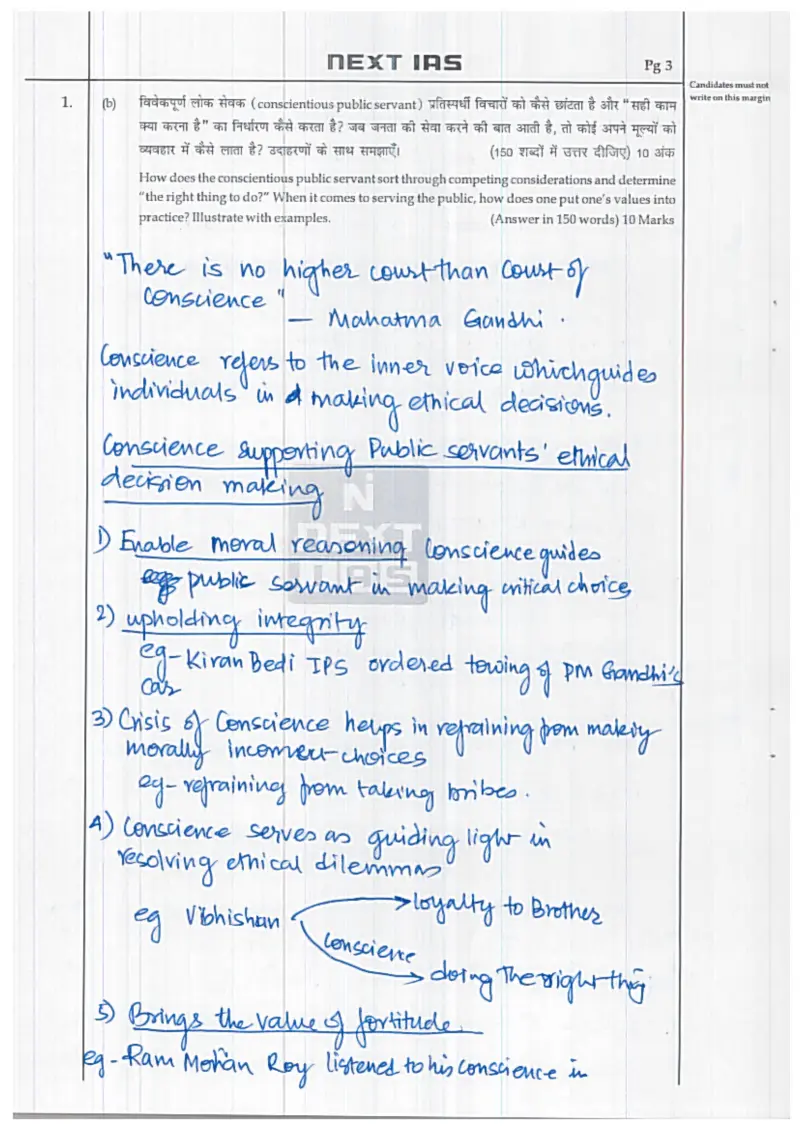 NEXT IAS
Pg 3
Candidates must not
write on this margin
1. (b) विवेकपूर्ण लोक सेवक (conscientious public servant) प्रतिस्पर्धी विचारों को कैसे छांटता है और "सही काम
क्या करना है" का निर्धारण कैसे करता है? जब जनता की सेवा करने की बात आती है, तो कोई अपने मूल्यों को
व्यवहार में कैसे लाता है? उदाहरणों के साथ समझाएँ। (150 शब्दों में उत्तर दीजिए) 10 अंक
How does the conscientious public servant sort through competing considerations and determine
"the right thing to do?" When it comes to serving the public, how does one put one's values into
practice? Illustrate with examples. (Answer in 150 words) 10 Marks
"There is no higher court than Court of
Conscience"
— Mahatma Gandhi.
Conscience refers to the inner voice which guides
individuals in making ethical decisions.
Conscience supporting Public servants' ethical
decision making
NEXT
IAS
1) Enable moral reasoning Conscience guides
public servant in making critical choice
2) upholding integrity
eg- Kiran Bedi IPS ordered towing of PM Gandhi's
Car
3) Crisis of Conscience helps in refraining from making
morally incorrect choices
eg- refraining from taking bribes.
4) Conscience serves as guiding light in
resolving ethical dilemmas
eg Vibhishan loyalty to Brother
Conscience
doing The right thing
5) Brings the value of fortitude.
eg- Ram Mohan Roy listened to his conscience in